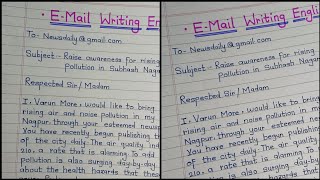 • E-Mail Writing En
To- Newsdaily@gmail.com
Subject - Raise awareness for rising
pollution in Subhash Nagar
Respected Sir/Madam
I, Varun More, would like to bring
rising air and noise pollution in my
Nagpur through your esteemed newsp
You have recently begun publishing
of the city daily. The air quality ind
210, a rate that is alarming. To add
pollution is also surging day-by-day.
about the health hazards that these
• E-Mail Writing Engli
To- Newsdaily@gmail.com
Subject - Raise awareness for rising
pollution in Subhash Nagar
Respected Sir/Madam
I, Varun More, would like to bring
rising air and noise pollution in my
Nagpur through your esteemed
You have recently begun publishing
of the city daily. The air quality
210, a rate that is alarming. To
pollution is also surging day-by
about the health hazards that